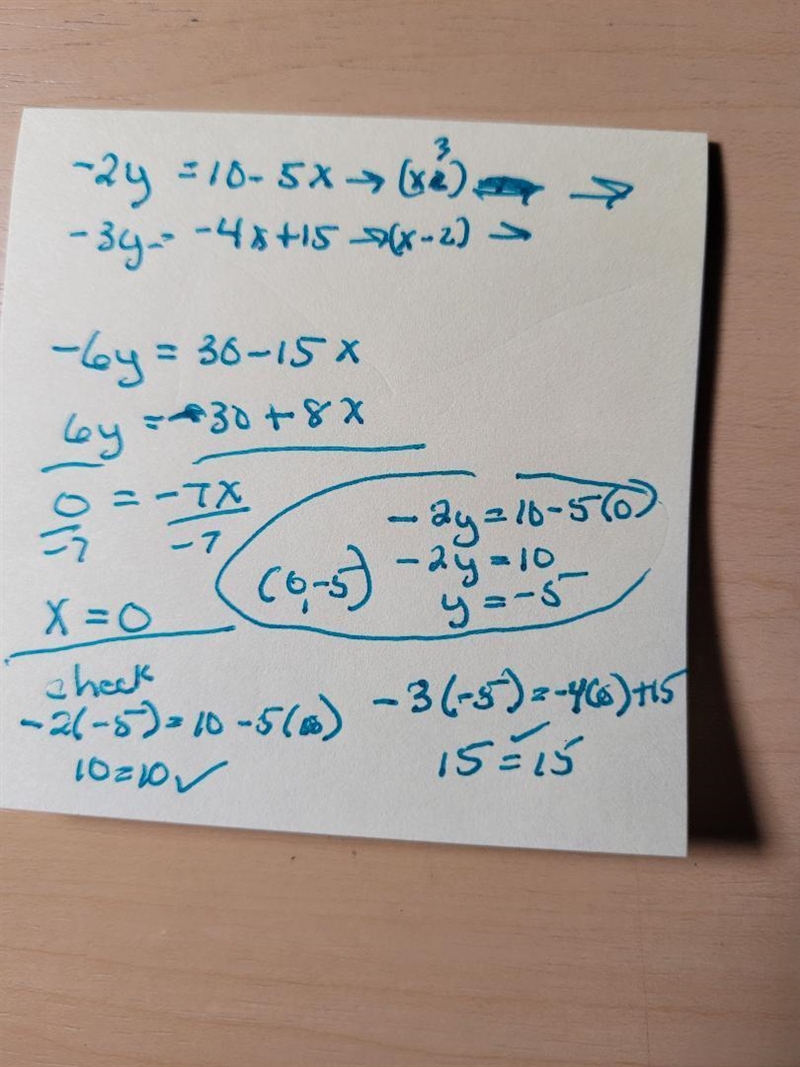 -2y = 10 - 5x → (x3) →
-3y = -4x + 15 → (x-2) →
-6y = 30 - 15x
6y = -30 + 8x
0 = -7x
-7 -7
x = 0
-2y = 10 - 5(0)
-2y = 10
y = -5
(0, -5)
check
-2(-5) = 10 - 5(0)
10 = 10 ✓
-3(-5) = -4(0) + 15
15 = 15 ✓